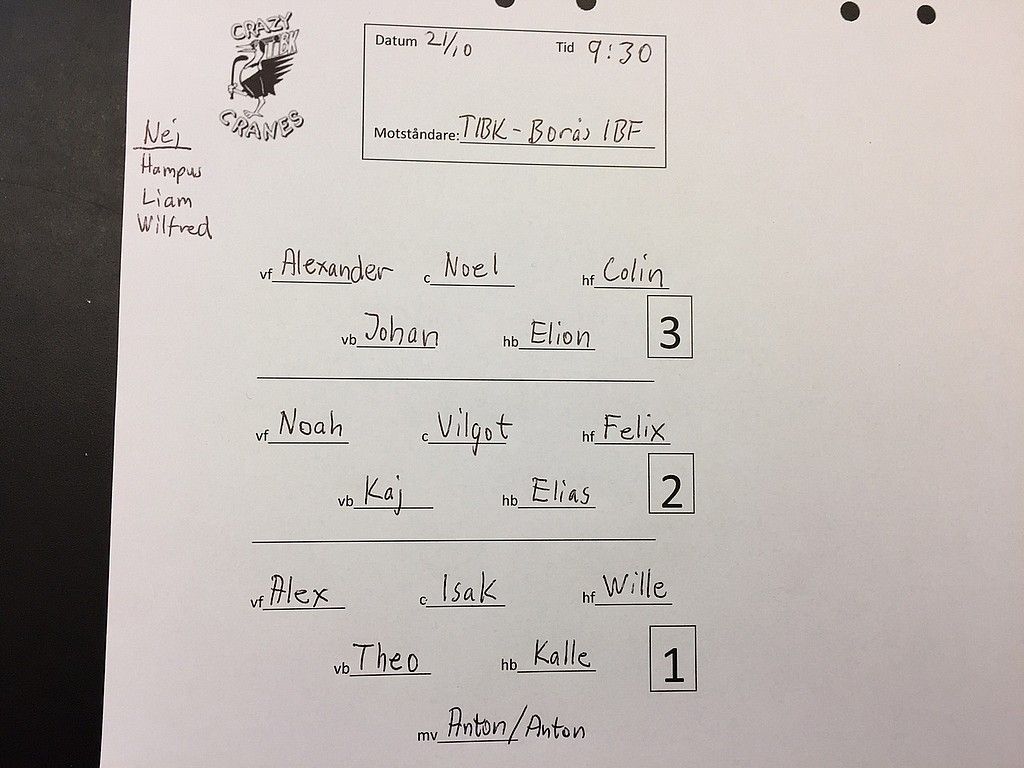 CRAZY
TBK
CRANES
Datum 21/10 Tid 9:30
Motståndare: TIBK - Borås IBF
Nej
Hampus
Liam
Wilfred
vf Alexander c Noel hf Colin
vb Johan hb Elion 3
vf Noah c Vilgot hf Felix
vb Kaj hb Elias 2
vf Alex c Isak hf Wille
vb Theo hb Kalle 1
mv Anton/Anton